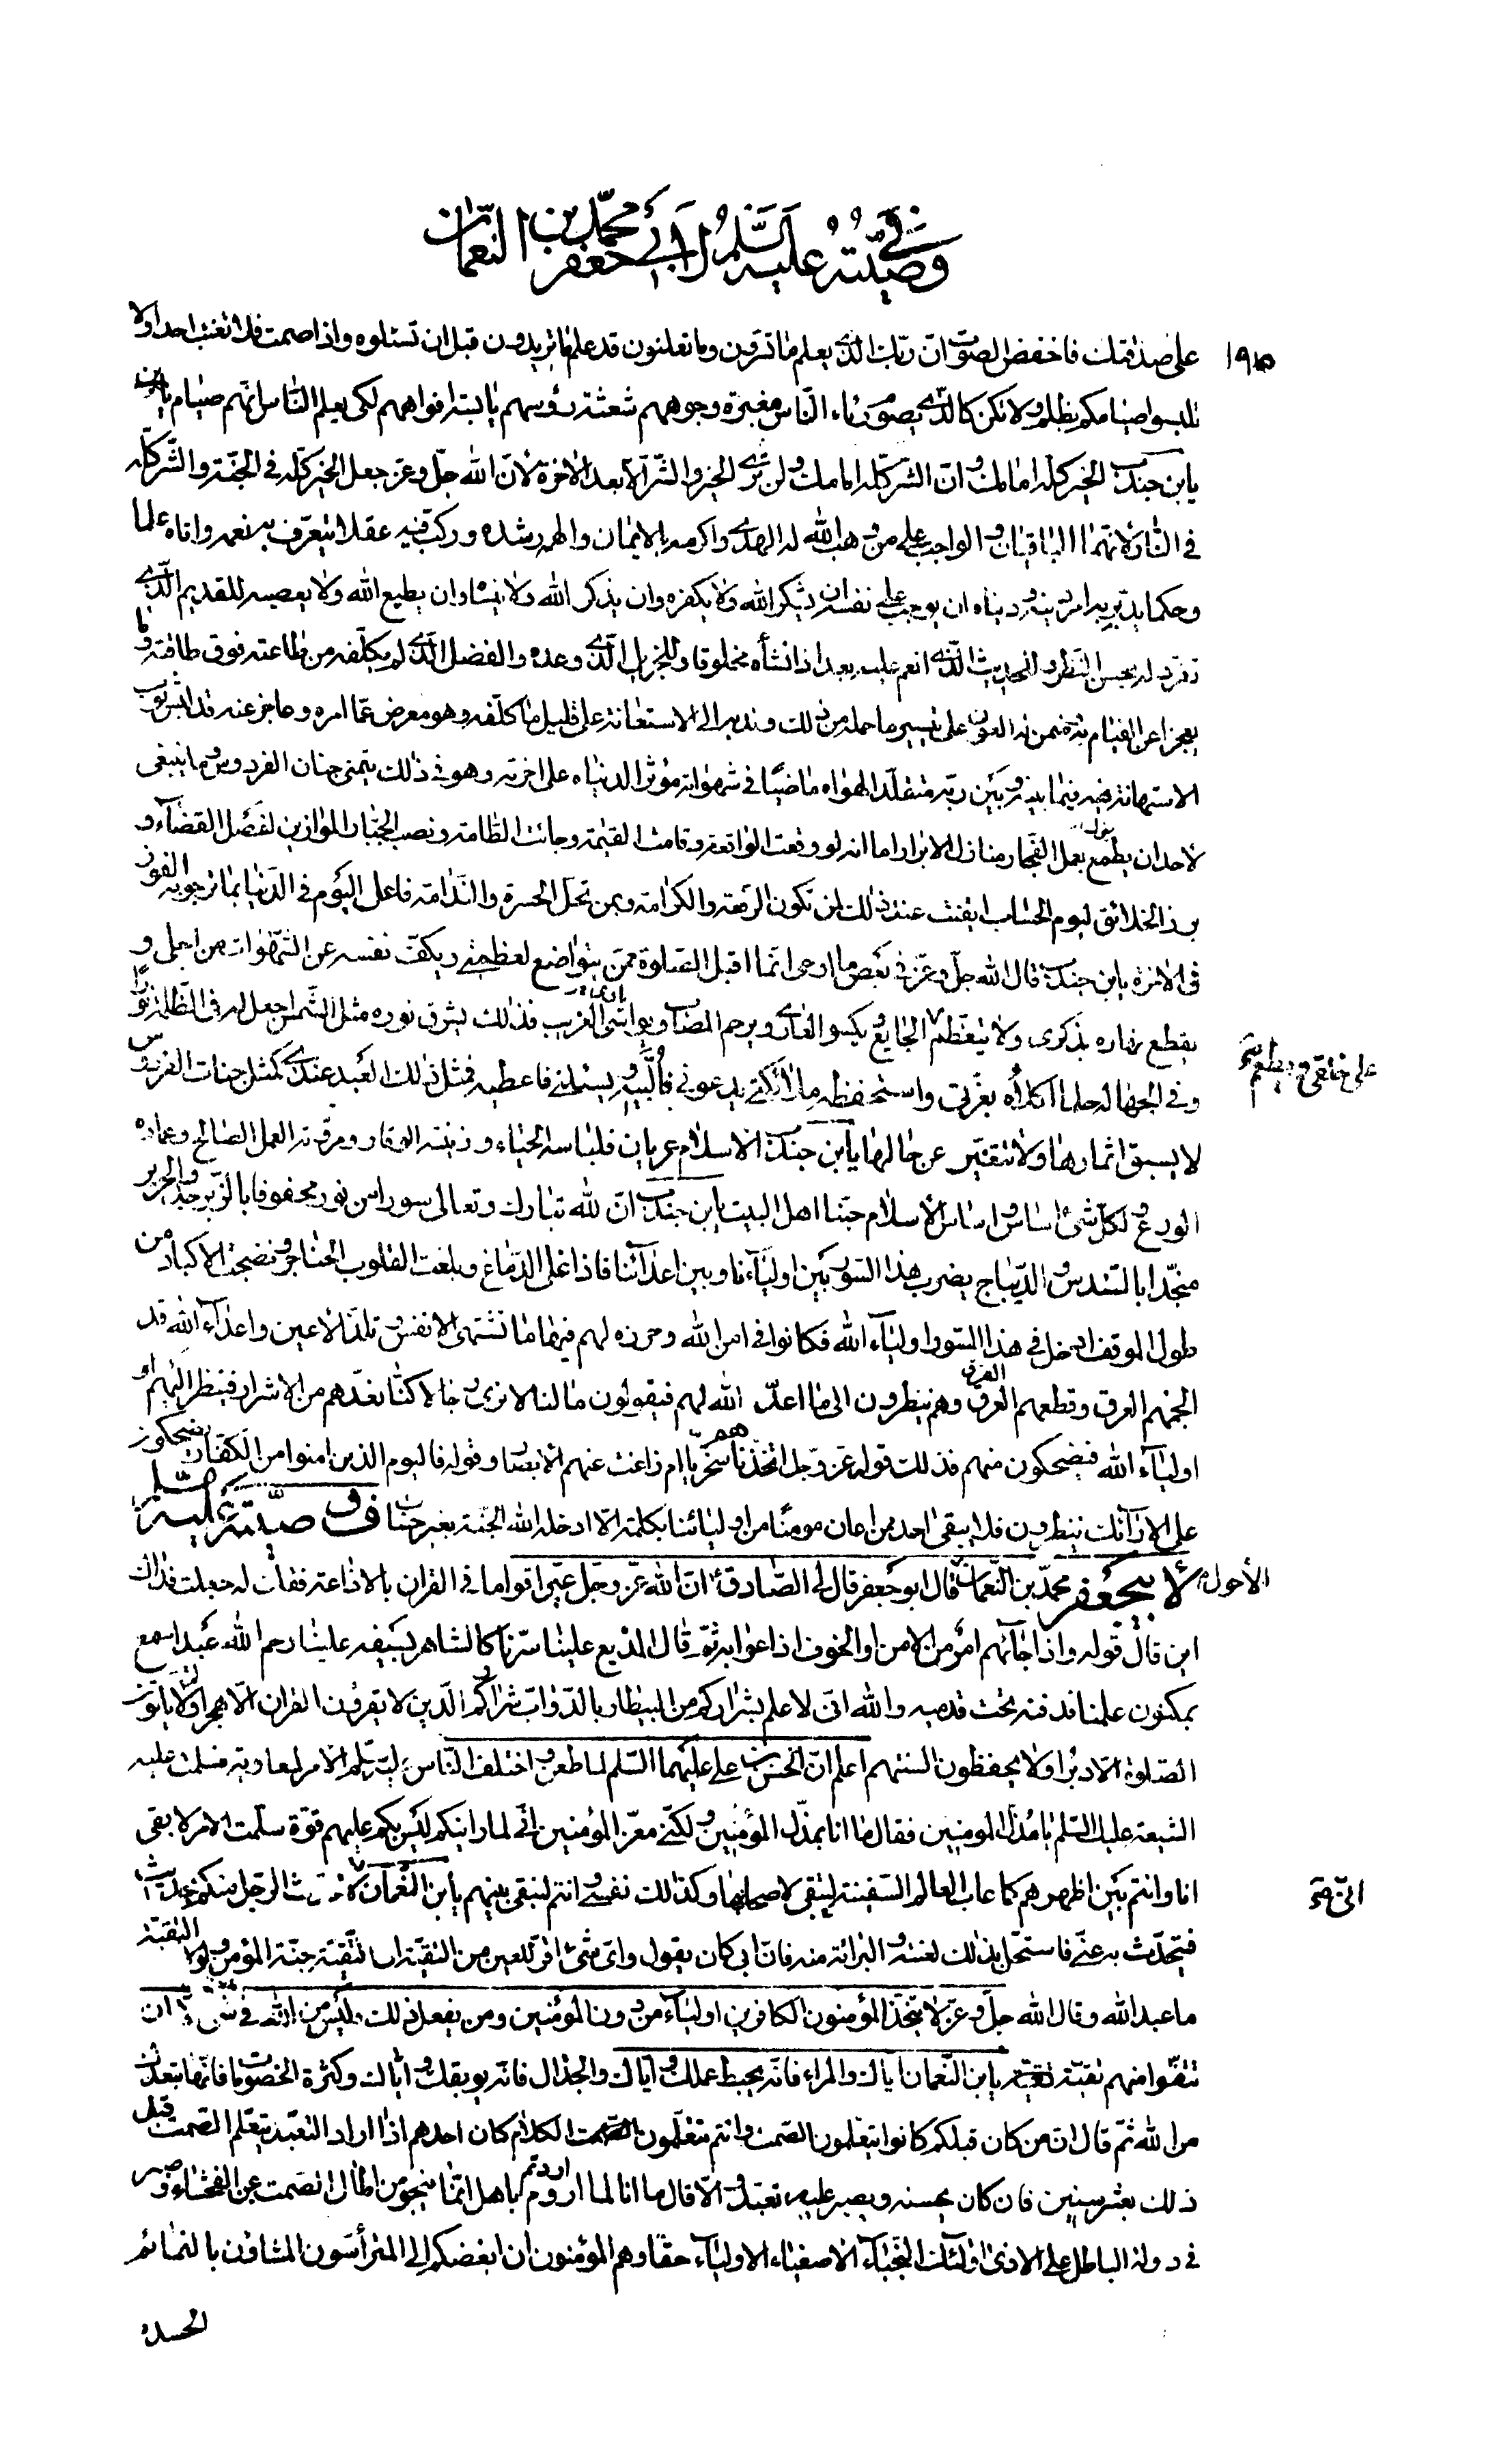 في وصيّته عليه السّلم لأبي جعفر محمّد بن النعمان
١٩٥
على صدقتك فاخفض الصوت انّ ربّك الّذي يعلم ما تسرّون وما تعلنون قد علم ما تريدون قبل ان تسئلوه واذا صمت فلا تغتب احدا ولا
تلبسوا صيامكم بظلم ولا تكن كالّذي يصوم رئاء النّاس مغبرّة وجوههم شعثة رؤسهم يابسة افواههم لكى يعلم النّاس انّهم صيام يابن
يابن جندب الخير كلّه امامك وانّ الشرّ كلّه امامك ولن ترى الخير والشّرّ الّا بعد الاخرة لانّ الله جلّ وعزّ جعل الخير كلّه في الجنّة والشّر كلّه
في النّار لانّهما الباقيان والواجب على من وهب الله له الهدى واكرمه بالايمان والهمه رشده وركّب فيه عقلا يتعرّف به نعمه واتاه علما
وحكما يدبّر به امر دينه ودنياه ان يوجب على نفسه ان يشكر الله ولا يكفره وان يذكر الله ولا ينساه وان يطيع الله ولا يعصيه للقديم الّذي
تفرّد له بحسن النّظر وللحديث الّذي انعم عليه بعد اذ انشأه مخلوقا وللجزيل الّذي وعده والفضل الّذي لم يكلّفه من طاعته فوق طاقته وما
يعجز عن القيام به وضمن له العون على تيسير ما حمله من ذلك وندبه الى الاستعانة على قليل ما كلّفه وهو معرض عمّا امره وعاجز عنه قد لبس ثوب
الاستهانة فيه فيما بينه وبين ربّه متقلّدا لهواه ماضيًا في شهواته مؤثرا لدنياه على اخرته وهو في ذلك يتمنى جنان الفردوس وما ينبغى
لاحد ان يطمع بعمل الفجّار منازل الابرار اما انه لو وقعت الواقعة وقامت القيمة وجائت الطّامة ونصب الجبّار الموازين لفصل القضاء و
برز الخلائق ليوم الحساب ايقنت عند ذلك لمن تكون الرفعة والكرامة وبمن تحلّ الحسرة والنّدامة فاعمل اليوم في الدّنيا بما ترجو به الفوز
في الاخرة يابن جندب قال الله جلّ وعزّ في بعض ما اوحى انّما اقبل الصّلوة ممّن يتواضع لعظمتي ويكفّ نفسه عن الشّهوات من اجلى و
يقطع نهاره بذكرى ولا يتعظّم الجايع ويكسو العارى ويرحم المصاب ويواسى الغريب فذلك يشرق نوره مثل الشّمس اجعل له في الظّلمة نورًا
على خلقى ويطعم
وفي الجهالة حلما اكلاه بعزّتى واستحفظه ملائكتى يدعونى فالبّيه ويسئلنى فاعطيه فمثل ذلك العبد عندى كمثل جنات الفردوس
لا يسبق اثمارها ولا تتغيّر عن حالها يابن جندب الاسلام عريان فلباسه الحياء وزينته الوقار ومروّته العمل الصّالح وعماده
الورع ولكلّ شىء اساس واساس الاسلام حبّنا اهل البيت يابن جندب انّ لله تبارك وتعالى سورا من نور محفوفا بالزّبرجد والحرير
منجّدا بالسّندس والدّيباج يضرب هذا السّور بين اوليآءنا وبين اعدآئنا فاذا غلى الدّماغ وبلغت القلوب الحناجر ونضجت الاكباد من
طول الموقف ادخل في هذا السّور اوليآء الله فكانوا في امن الله وحرزه لهم فيها ما تشتهى الانفس وتلذّ الاعين واعدآء الله قد
الجمهم العرق وقطعهم الفرق وهم ينظرون الى ما اعدّ الله لهم فيقولون ما لنا لا نرى رجالا كنّا نعدّهم من الاشرار فينظر اليهم
اوليآء الله فيضحكون منهم فذلك قوله عزّ وجل اتخذناهم سخريّا ام زاغت عنهم الابصار وقوله فاليوم الذين امنوا من الكفّار يضحكون
على الارائك ينظرون فلا يبقى احد ممن اعان مومنًا من اوليائنا بكلمة الّا ادخله الله الجنّة بغير حساب في وصيّته عليه السّلم
الأحول
لأبيجعفر محمّد بن النّعمان قال ابوجعفر قال لى الصّادق ع انّ الله عزّ وجلّ عيّر اقواما في القران بالاذاعة فقلت له جعلت فداك
اين قال قوله واذا جآئهم امر من الامن او الخوف اذاعوا به ثمّ قال المذيع علينا سرّنا كالشاهر بسيفه علينا رحم الله عبدا سمع
بمكنون علمنا فدفنه تحت قدميه والله انّى لاعلم بشراركم من البيطار بالدّوابّ شراركم الّذين لا يقرؤن القران الّا هجرا ولا ياتون
الصّلوة الّا دبرا ولا يحفظون السنتهم اعلم انّ الحسن بن على عليهما السّلم لما طعن واختلف النّاس عليه سلّم الامر لمعاوية فسلمت عليه
الشيعة عليك السّلم يا مذلّ المومنين فقال ما انا بمذلّ المؤمنين ولكنّى معزّ المؤمنين انّى لما رايتكم ليس بكم عليهم قوّة سلّمت الامر لابقى
انا وانتم بين اظهرهم كما عاب العالم السّفينة لتبقى لاصحابها وكذلك نفسى وانتم لنبقى بينهم يابن النّعمان لاحدّث الرّجل منكم بحديث
انّى
فيتحدّث به عنّى فاستحلّ بذلك لعنته والبرائة منه فانّ ابى كان يقول واىّ شىء اقرّ للعين من التقيّة انّ التّقيّة جنّة المؤمن ولولا التقيّة
ما عبد الله وقال الله جلّ وعزّ لا يتّخذ المؤمنون الكافرين اوليآء من دون المؤمنين ومن يفعل ذلك فليس من الله في شىء الّا ان
تتّقوا منهم تقيّة يابن النّعمان ايّاك والمراء فانّه يحبط عملك وايّاك والجدال فانّه يوبقك وايّاك وكثرة الخصومات فانّها تبعدك
من الله ثمّ قال انّ من كان قبلكم كانوا يتعلّمون الصّمت وانتم تتعلّمون الكلام كان احدهم اذا اراد التعبّد يتعلّم الصّمت قبل
ذلك بعشر سنين فان كان يحسنه ويصبر عليه تعبّد والّا قال ما انا لما اروم باهل انّما ينجو من اطال الصّمت عن الفحشاء وصبر
في دولة الباطل على الاذى اولئك النّجباء الاصفياء الاولياء حقّا وهم المؤمنون ان ابغضكم الىّ المتراسّون المشاؤن بالنمائم
الحسدة